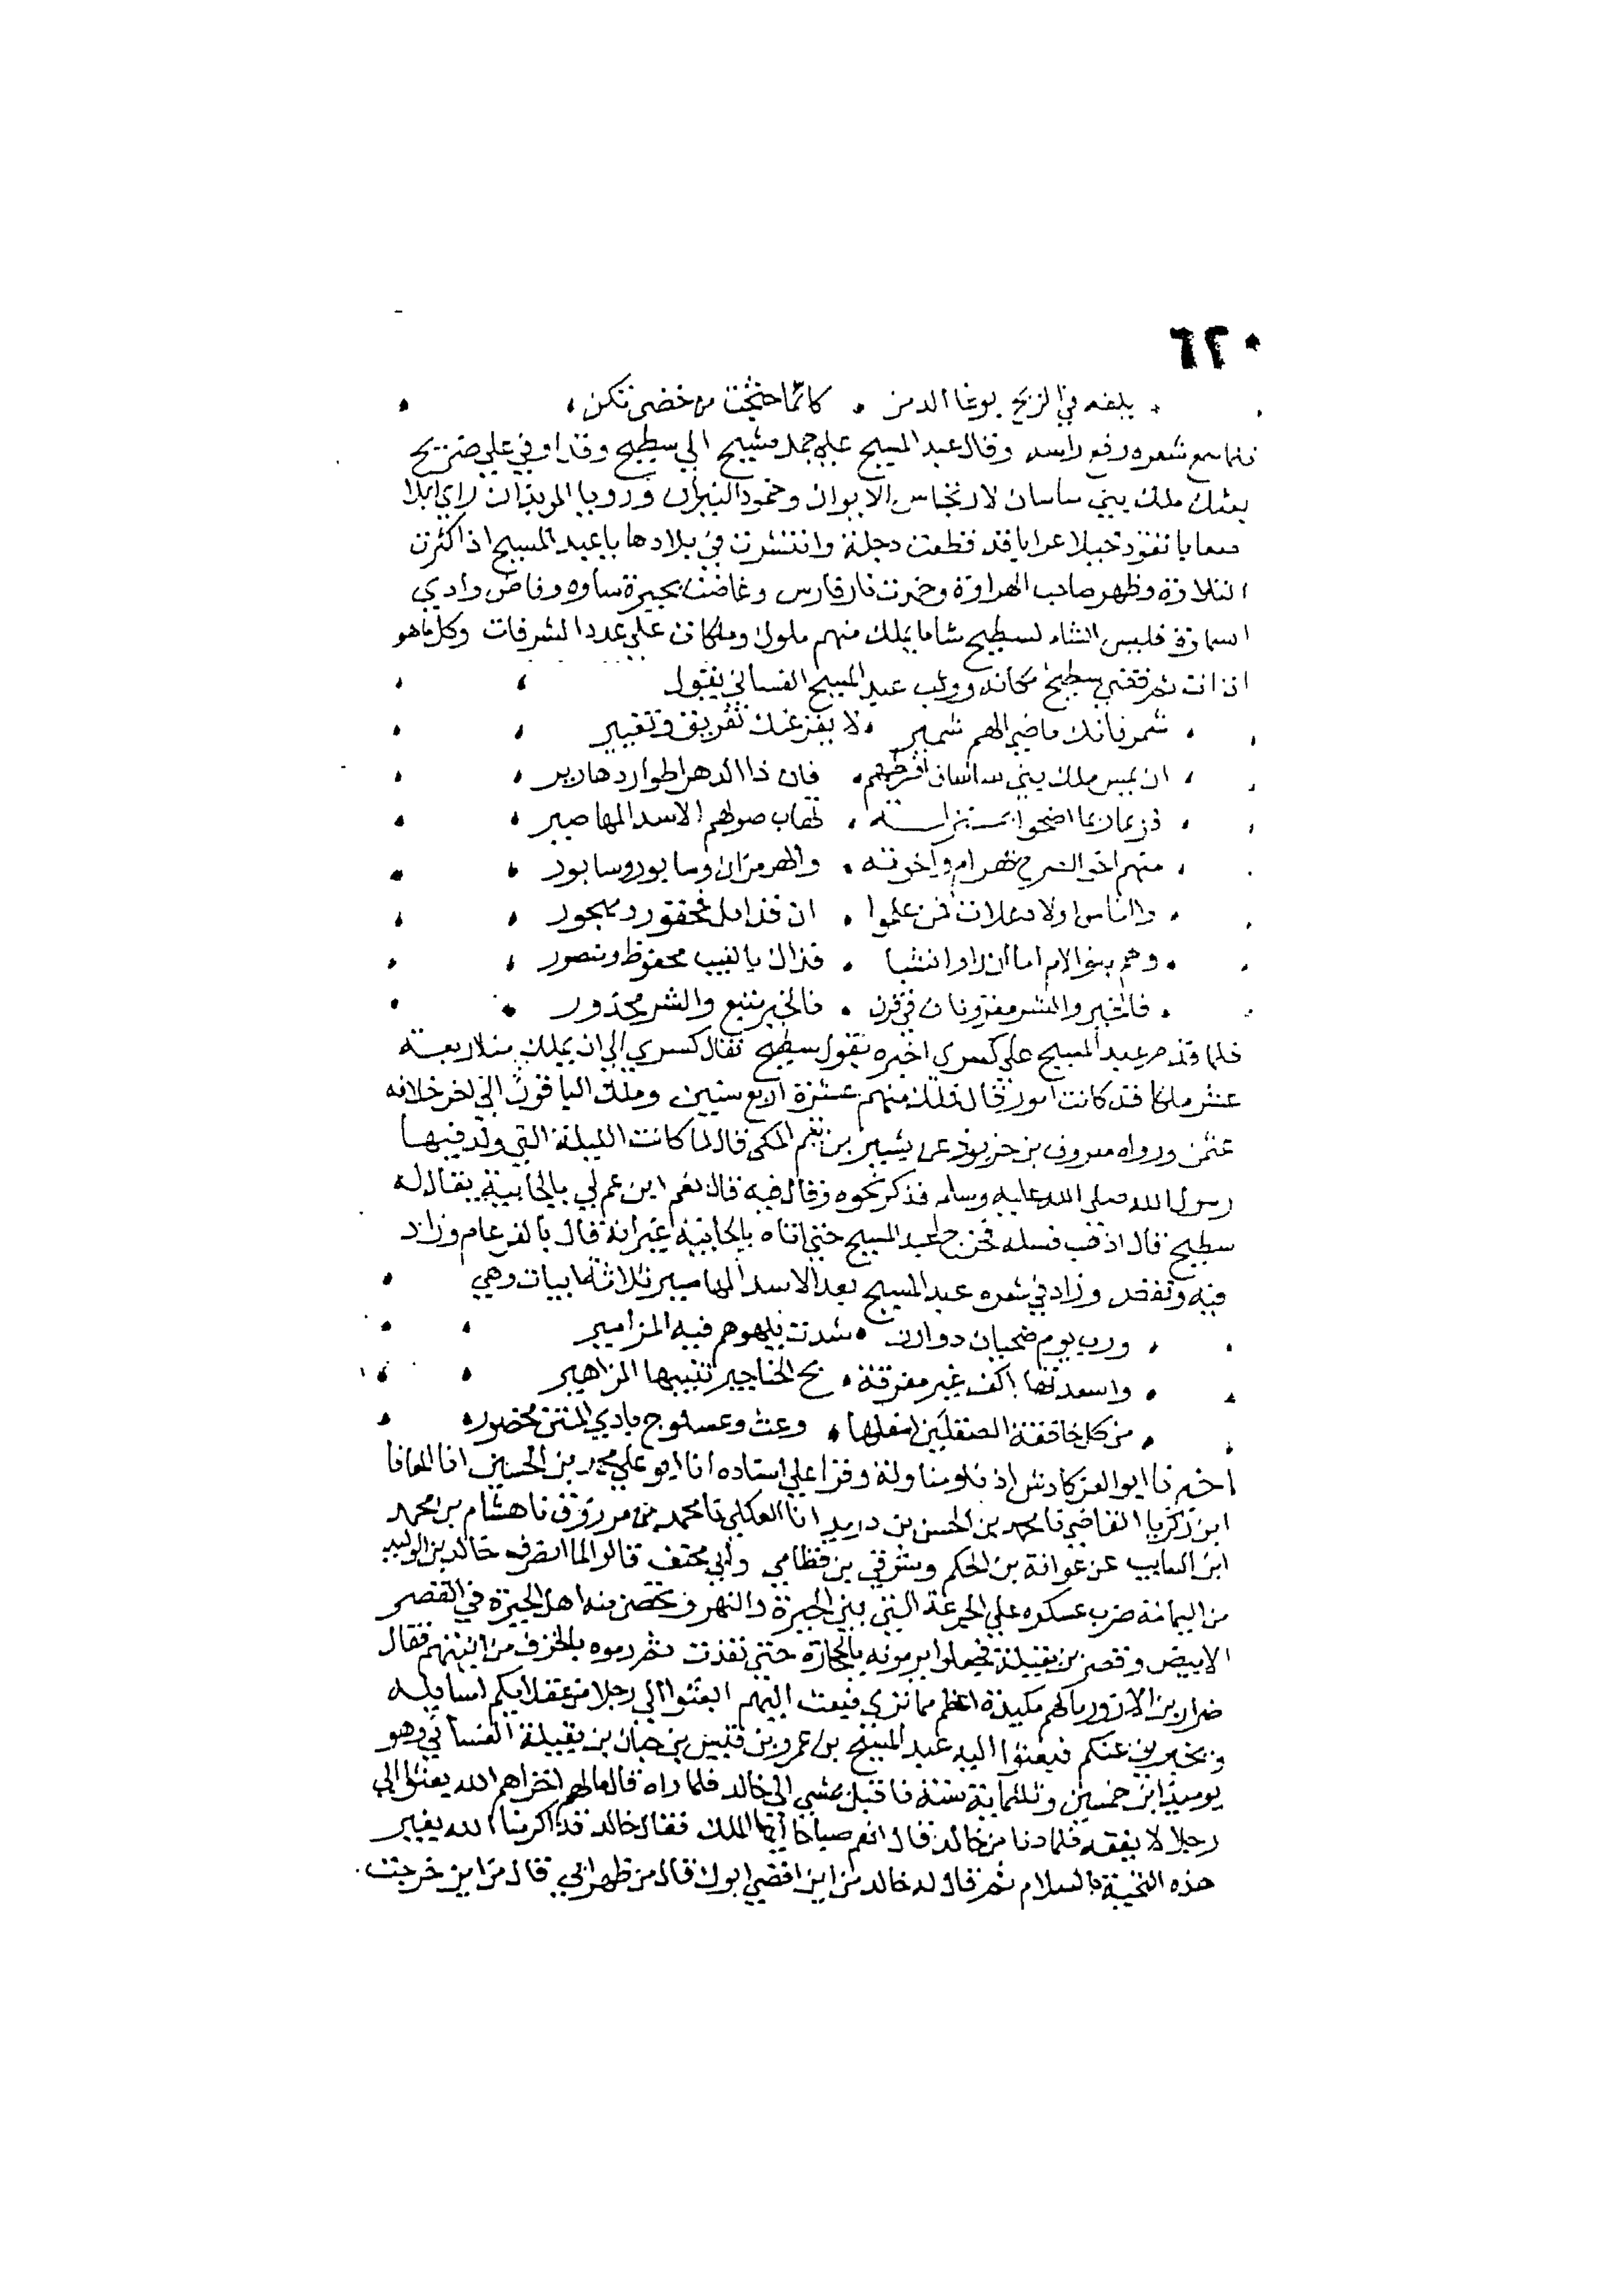 ٦٢٠
يلفه في الريح بوغا الدمن كانما حثحث من حضني ثكن
فلما سمع شعره رفع راسه وقال عبد المسيح علي جمل مشيح الي سطيح وقد اوفي علي ضريح
بعثك ملك بني ساسان لارتجاس الايوان وخمود النيران ورويا الموبذان راي ابلا
صعابا تقود خيلا عرابا قد قطعت دجلة وانتشرت في بلادها يا عبد المسيح اذا كثرت
التلاوة وظهر صاحب الهراوة وخمدت نار فارس وغاضت بحيرة ساوه وفاض وادي
السماوة فليس الشام لسطيح شاما يملك منهم ملوك وملكات علي عدد الشرفات وكل ما هو
ات ات ثم قضي سطيح مكانه ووثب عبد المسيح الغساني يقول
شمر فانك ماضي الهم شمير لا يفزعنك تفريق وتغيير
ان يمس ملك بني ساسان افرطهم فان ذا الدهر اطوار دهارير
فربما ربما اضحوا بمنزلة تهاب صولهم الاسد المهاصير
منهم اخو الصرح بهرام واخوته والهرمزان وسابور وسابور
والناس اولاد علات فمن علموا ان قد اقل فمحقور ومهجور
وهم بنو الام اما ان راوا نشبا فذاك بالغيب محفوظ ومنصور
فالخير والشر مقرونان في قرن فالخير متبع والشر محذور
فلما قدم عبد المسيح علي كسري اخبره بقول سطيح فقال كسري الي ان يملك منا اربعة
عشر ملكا قد كانت امور قال فملك منهم عشرة اربع سنين وملك الباقون الي اخر خلافه
عثمن ورواه معروف بن خربوذ عن بشير بن تيم المكي قال لما كانت الليلة التي ولد فيها
رسول الله صلي الله عليه وسلم فذكر نحوه وقال فيه قال نعم ابن عم لي بالجابية يقال له
سطيح قال اذهب فسله فخرج عبد المسيح حتي اتاه بالجابية غير انه قال بالف عام وزاد
فيه ونقص وزاد في شعره عبد المسيح بعد الاسد المهاصير ثلاثة ابيات وهي
ورب يوم ضحيان دوان شدت بلهوهم فيه المزامير
واسعدتها اكف غير مقرفة بح الحناجير تثنيها المزاهير
من كل خافقة الصقلين اسفلها وعث وعسلوج بادي المتن محضور
اخبرنا ابو العز كادش اذنا ومناولة وقرا علي اسناده انا ابو علي محمد بن الحسين انا المعافا
ابن زكريا القاضي نا محمد بن الحسن بن دريد انا العكلي نا محمد بن مرزوق نا هشام بن محمد
ابن السايب عن عوانة بن الحكم وشرقي بن قطامي وابي مخنف قالوا لما انصرف خالد بن الوليد
من اليمامة ضرب عسكره علي الجرعة التي بين الحيرة والنهر وتحصن منه اهل الحيرة في القصر
الابيض وقصر بن بقيلة فجعلوا يرمونه بالحجارة حتي نفدت ثم رموه بالخزف من انيتهم فقال
ضرار بن الازور ما لهم مكيدة اعظم مما تري فبعث اليهم ابعثوا الي رجلا من عقلايكم اسايله
ويخبرني عنكم فبعثوا اليه عبد المسيح بن عمرو بن قيس بن حيان بن بقيلة الغساني وهو
يوميذ ابن خمسين وثلثماية سنة فاقبل يمشي الي خالد فلما راه قال مالهم اخزاهم الله بعثوا الي
رجلا لا يفقه فلما دنا من خالد قال انعم صباحا ايها الملك فقال خالد قد اكرمنا الله بغير
هذه التحية بالسلام ثم قال له خالد من اين اقصي ابوك قال من ظهر ابي قال من اين خرجت